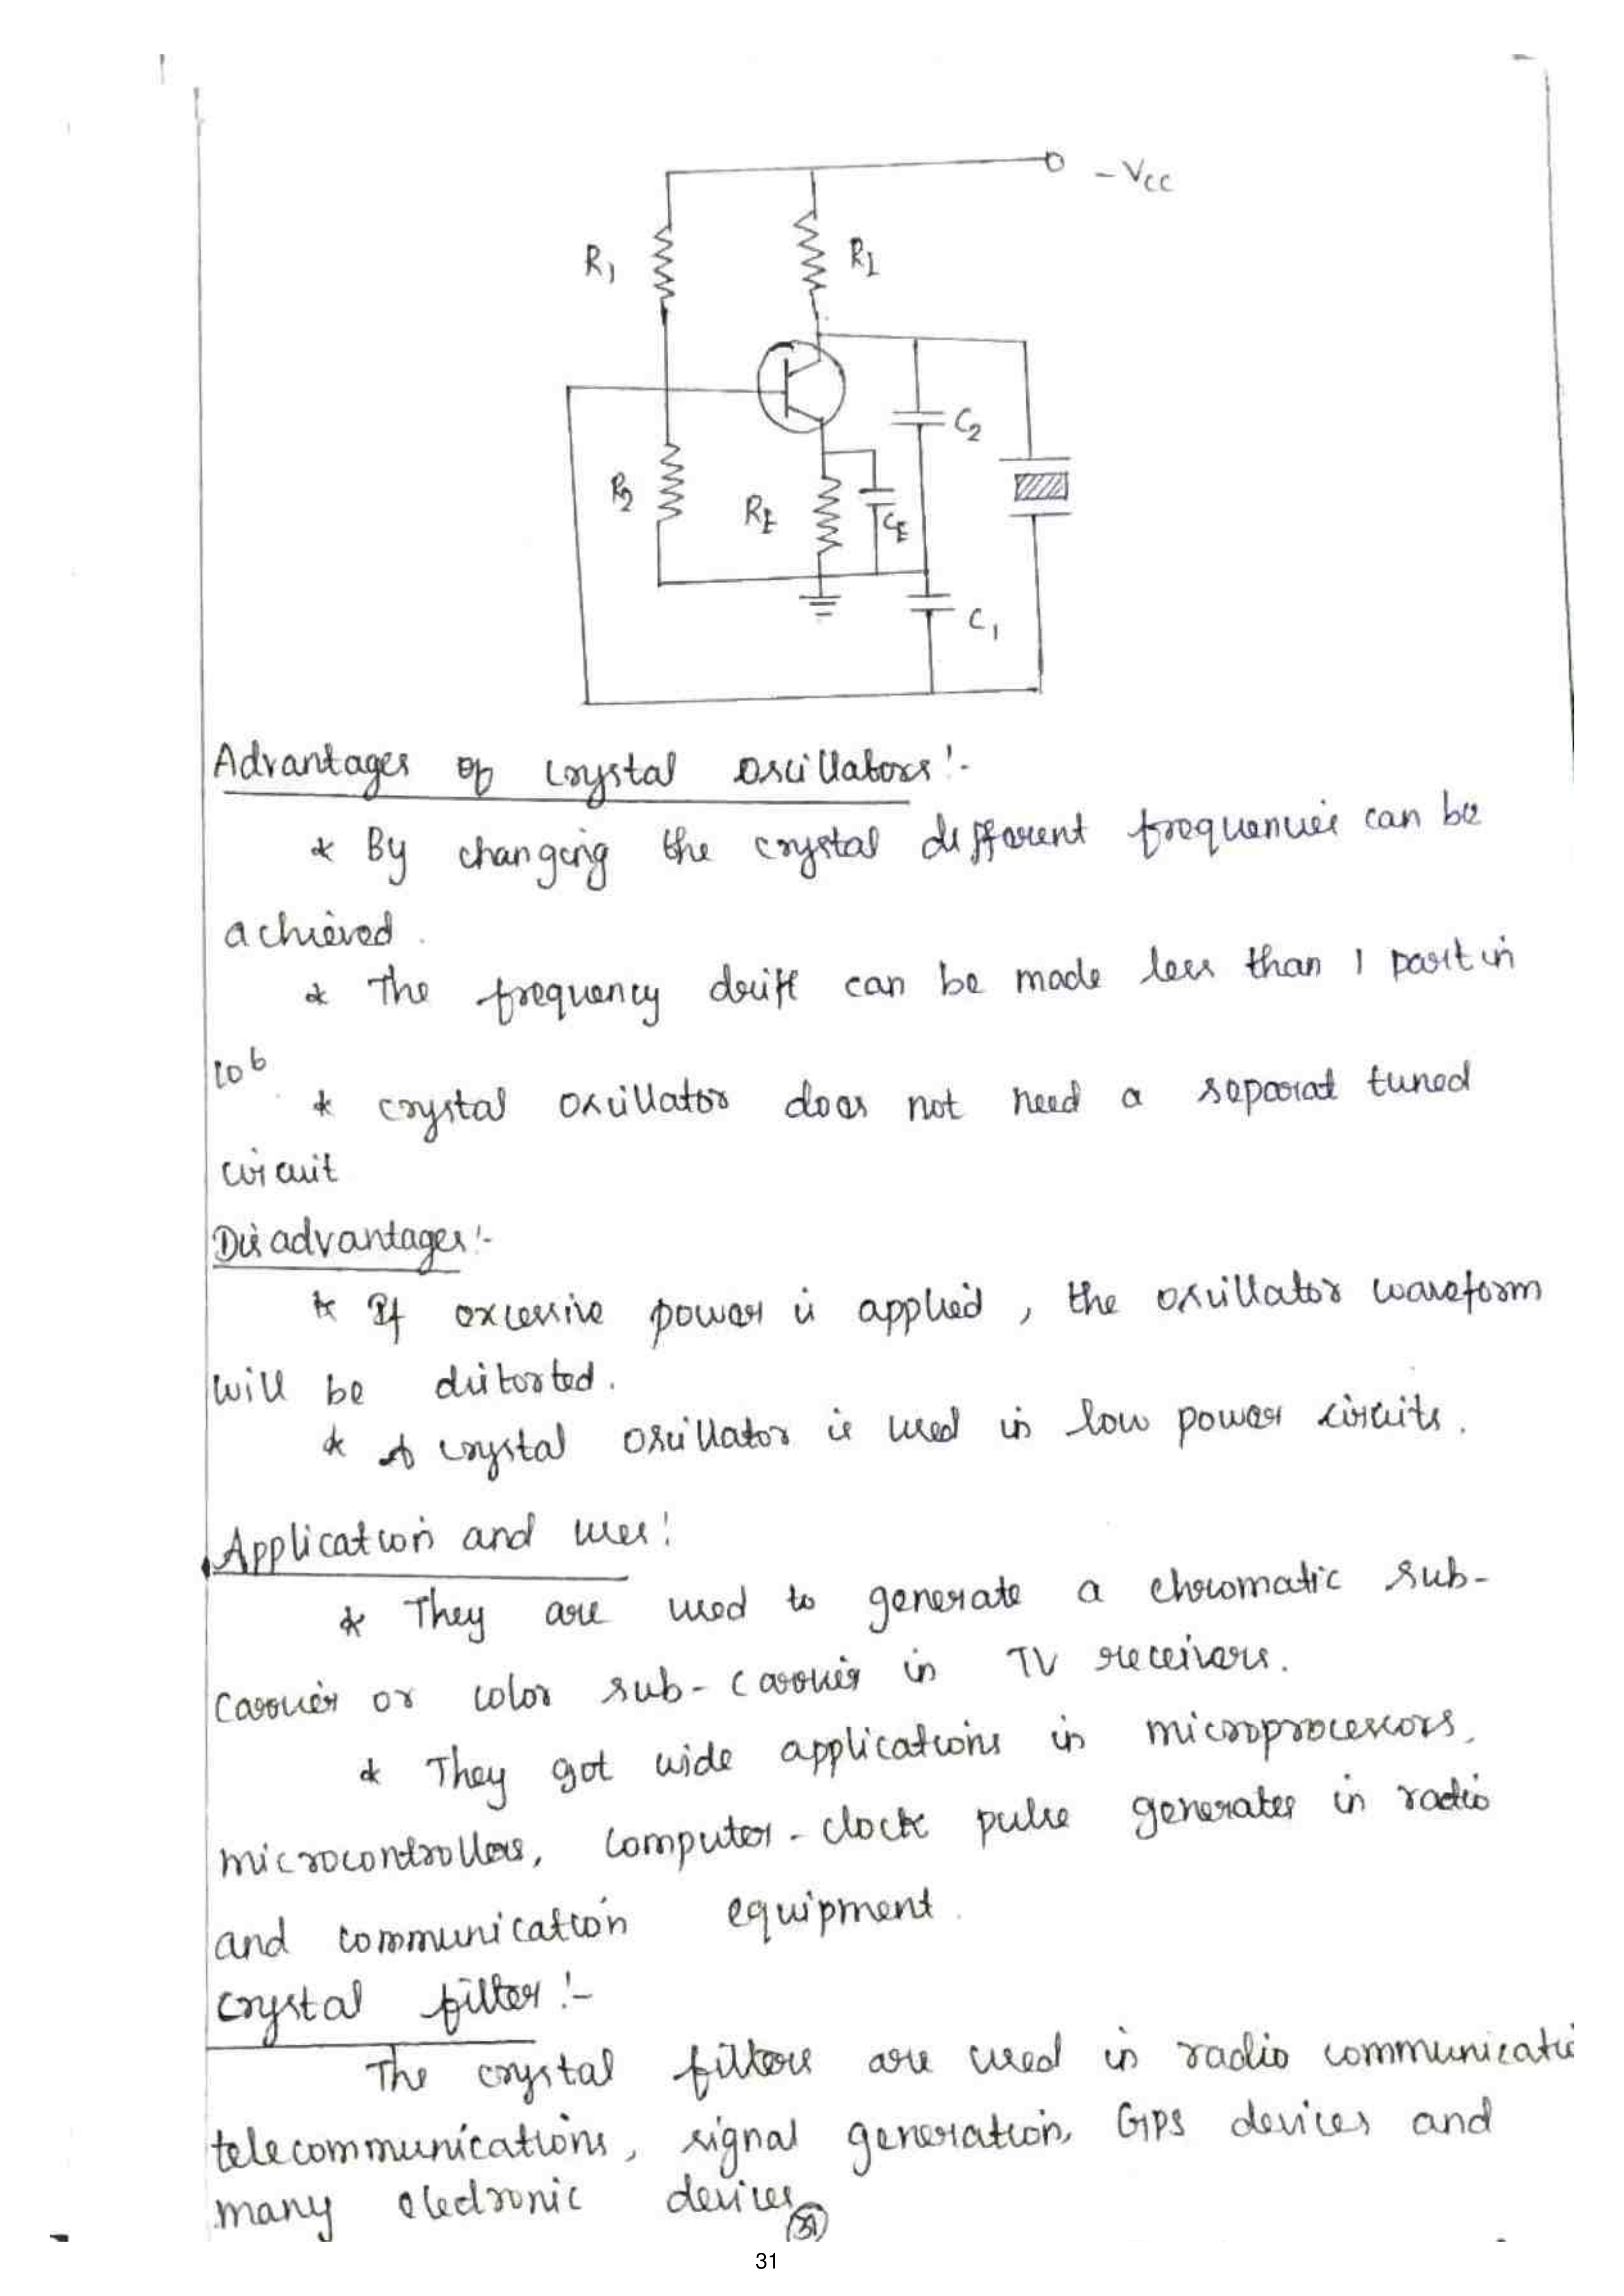 -VCC
R1
RL
C2
R2
RE
CE
C1
Advantages of crystal oscillators:-
* By changing the crystal different frequencies can be
achieved.
* The frequency drift can be made less than 1 part in
10^6.
* crystal oscillator does not need a separat tuned
circuit
Disadvantages:-
* If excessive power is applied, the oscillator waveform
will be distorted.
* A crystal oscillator is used in low power circuits.
Application and uses:
* They are used to generate a chromatic sub-
carrier or color sub-carrier in TV receivers.
* They got wide applications in microprocessors,
microcontrollers, computer-clock pulse generates in radio
and communication equipment.
crystal filter:-
The crystal filters are used in radio communicatio
telecommunications, signal generation, GPS devices and
many electronic devices
31
31